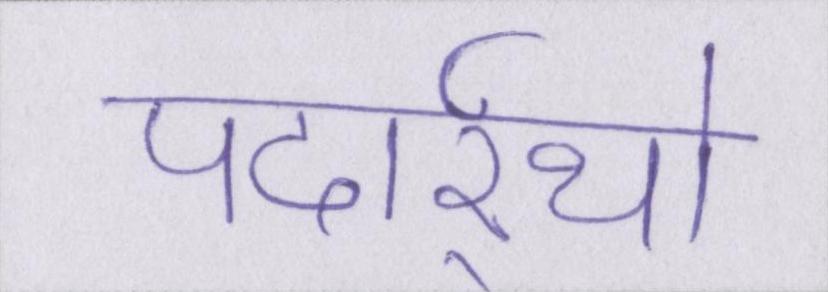 पदार्र्थो